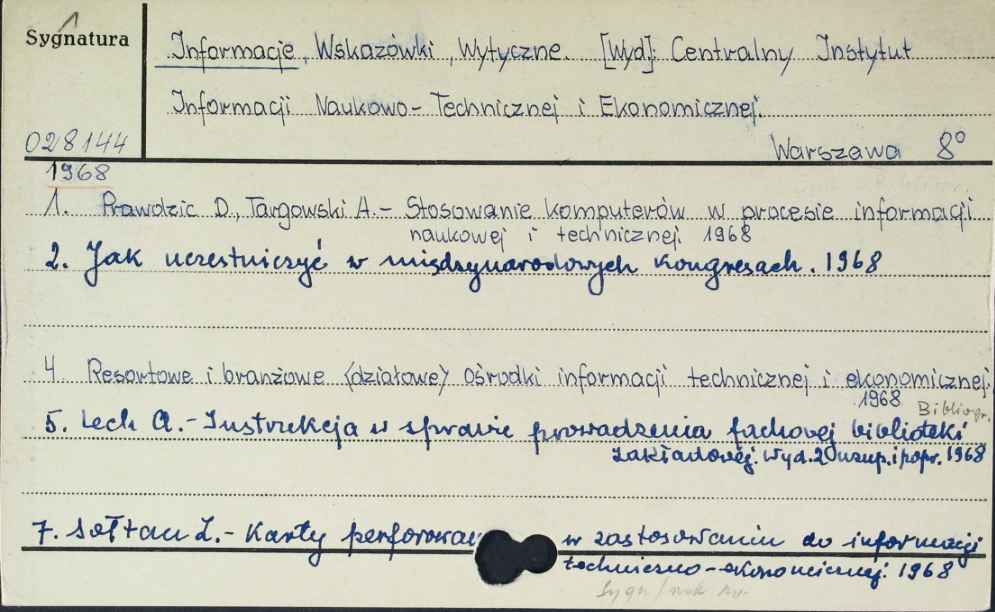 1
Sygnatura
Informacje, Wskazówki, Wytyczne. [Wyd]: Centralny Instytut
Informacji Naukowo-Technicznej i Ekonomicznej.
028144
Warszawa 8°
1968
1. Prawdzic D., Targowski A. - Stosowanie komputerów w procesie informacji
naukowej i technicznej. 1968
2. Jak uczestniczyć w międzynarodowych kongresach. 1968
4. Resortowe i branżowe (działowe) ośrodki informacji technicznej i ekonomicznej.
1968
Bibliogr.
5. Lech A. - Instrukcja w sprawie prowadzenia fachowej biblioteki
zakładowej. Wyd. 2 uzup. i popr. 1968
7. Sołtan Z. - Karty perforowan w zastosowaniu do informacji
techniczno-ekonomicznej. 1968